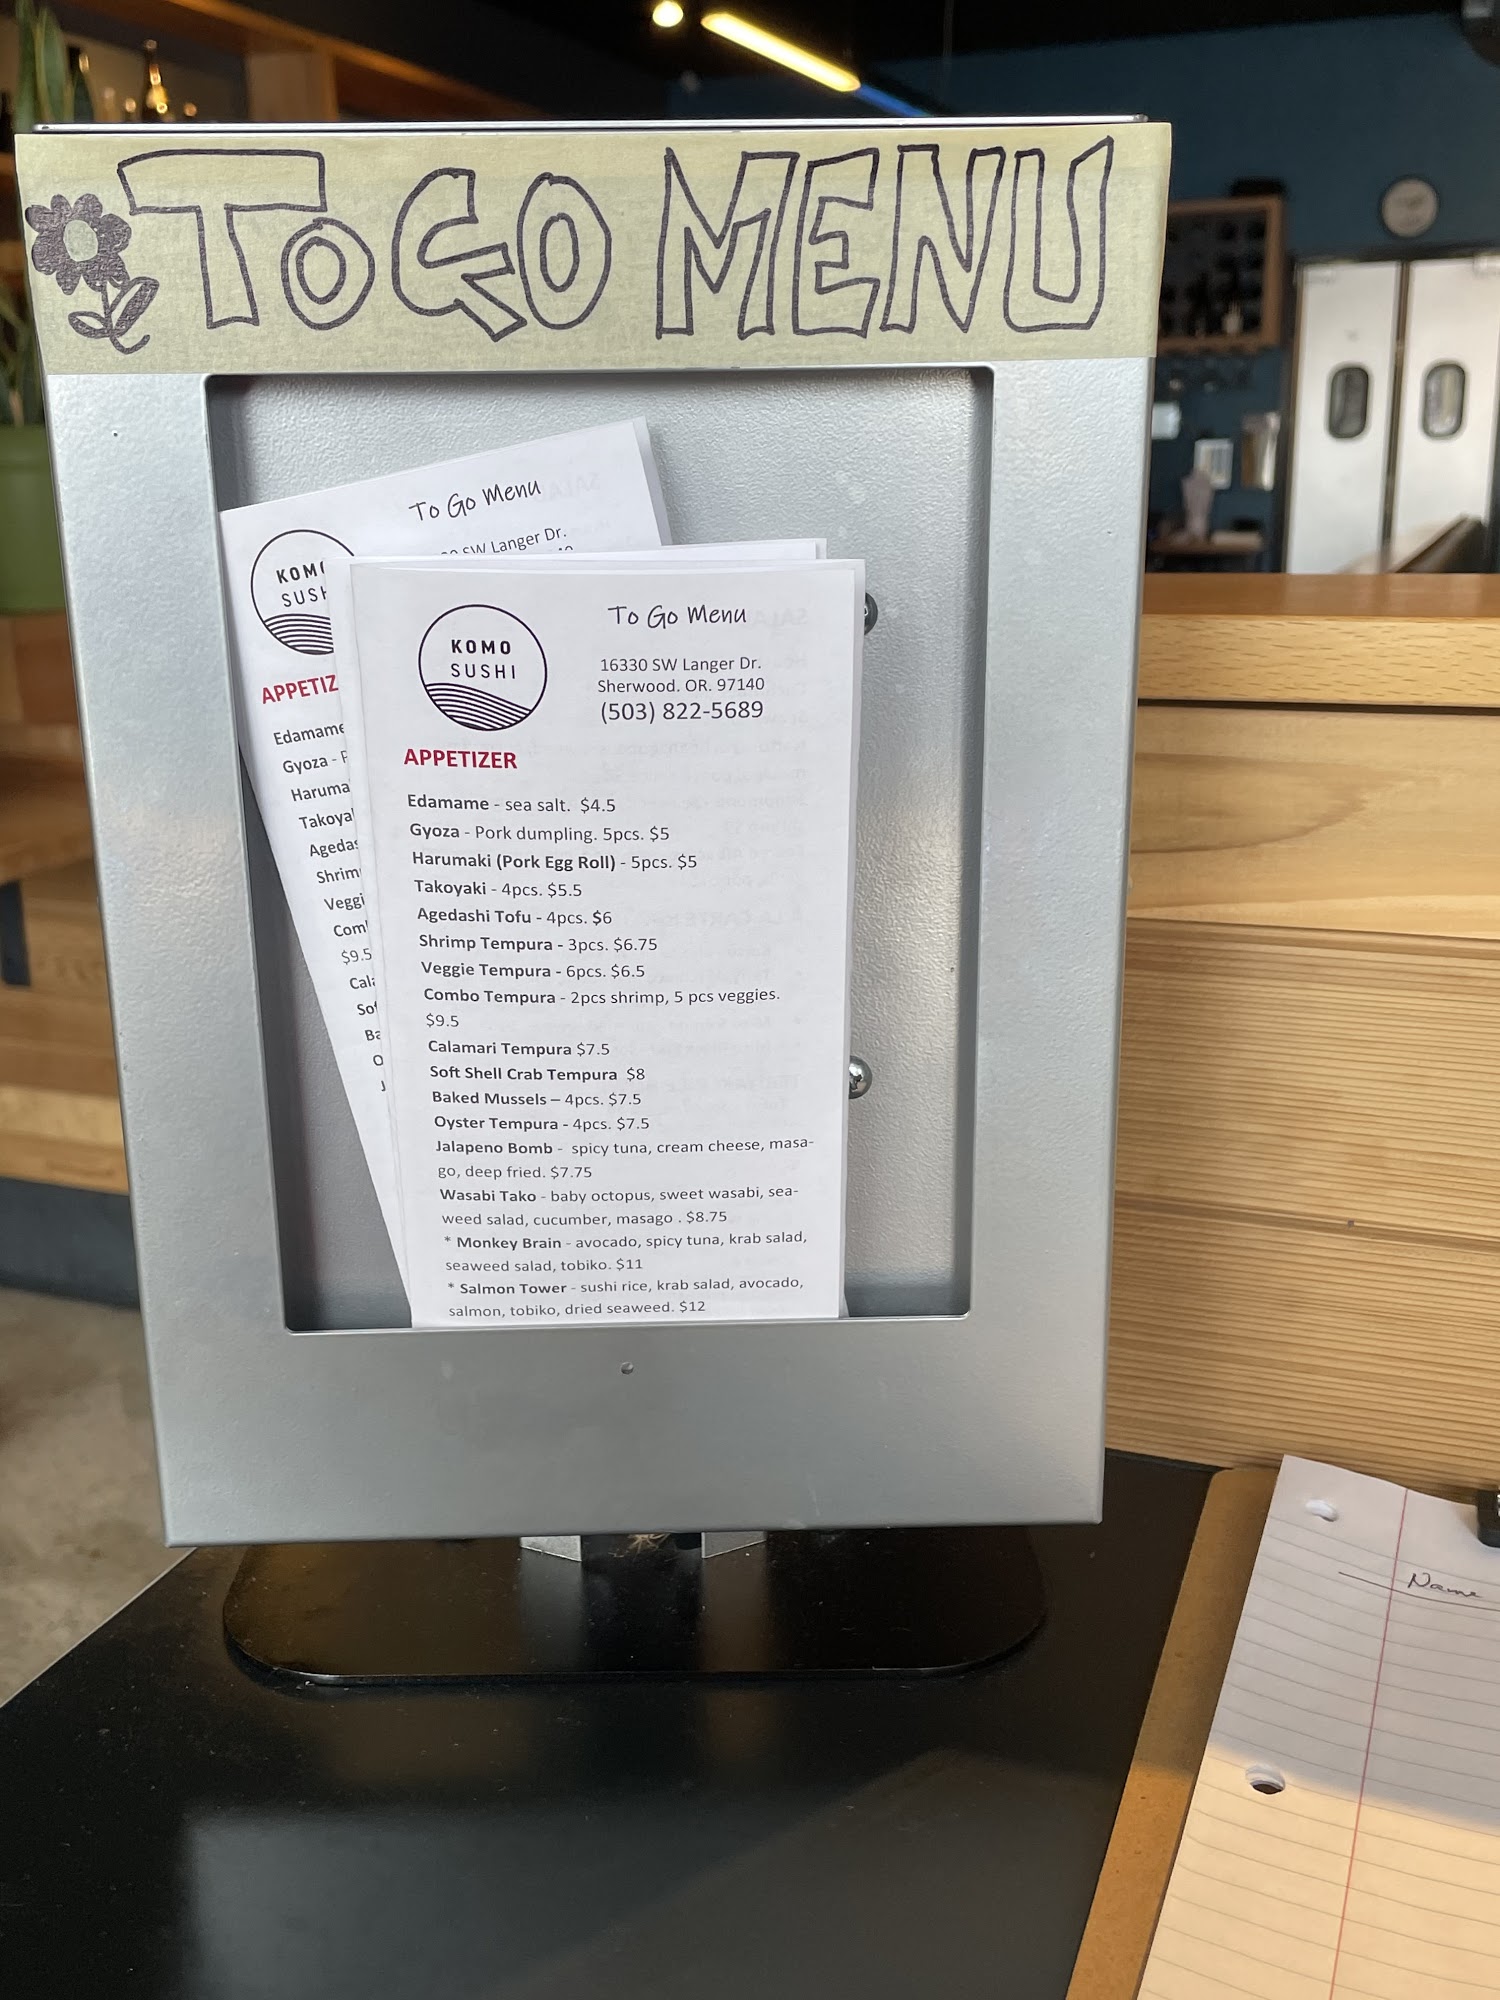 TO GO MENU
To Go Menu
SW Langer Dr.
KOMO
SUSHI
APPETIZ
Edamame
Gyoza -
Haruma
Takoya
Agedas
Shrim
Veggi
Com
$9.5
Cal
Sof
Ba
O
J
To Go Menu
KOMO
SUSHI
16330 SW Langer Dr.
Sherwood. OR. 97140
(503) 822-5689
APPETIZER
Edamame - sea salt. $4.5
Gyoza - Pork dumpling. 5pcs. $5
Harumaki (Pork Egg Roll) - 5pcs. $5
Takoyaki - 4pcs. $5.5
Agedashi Tofu - 4pcs. $6
Shrimp Tempura - 3pcs. $6.75
Veggie Tempura - 6pcs. $6.5
Combo Tempura - 2pcs shrimp, 5 pcs veggies.
$9.5
Calamari Tempura $7.5
Soft Shell Crab Tempura $8
Baked Mussels – 4pcs. $7.5
Oyster Tempura - 4pcs. $7.5
Jalapeno Bomb - spicy tuna, cream cheese, masa-
go, deep fried. $7.75
Wasabi Tako - baby octopus, sweet wasabi, sea-
weed salad, cucumber, masago . $8.75
* Monkey Brain - avocado, spicy tuna, krab salad,
seaweed salad, tobiko. $11
* Salmon Tower - sushi rice, krab salad, avocado,
salmon, tobiko, dried seaweed. $12
Name